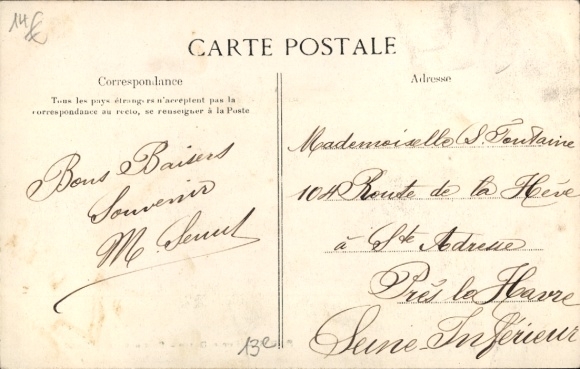 14 €
CARTE POSTALE
Correspondance
Tous les pays étrangers n'acceptent pas la
correspondance au recto, se renseigner à la Poste
Bons Baisers
Souvenir
M.
Adresse
Mademoiselle S. Fontaine
104 Route de la Hève
à Ste Adresse
Près le Havre
Seine-Inférieur
13e